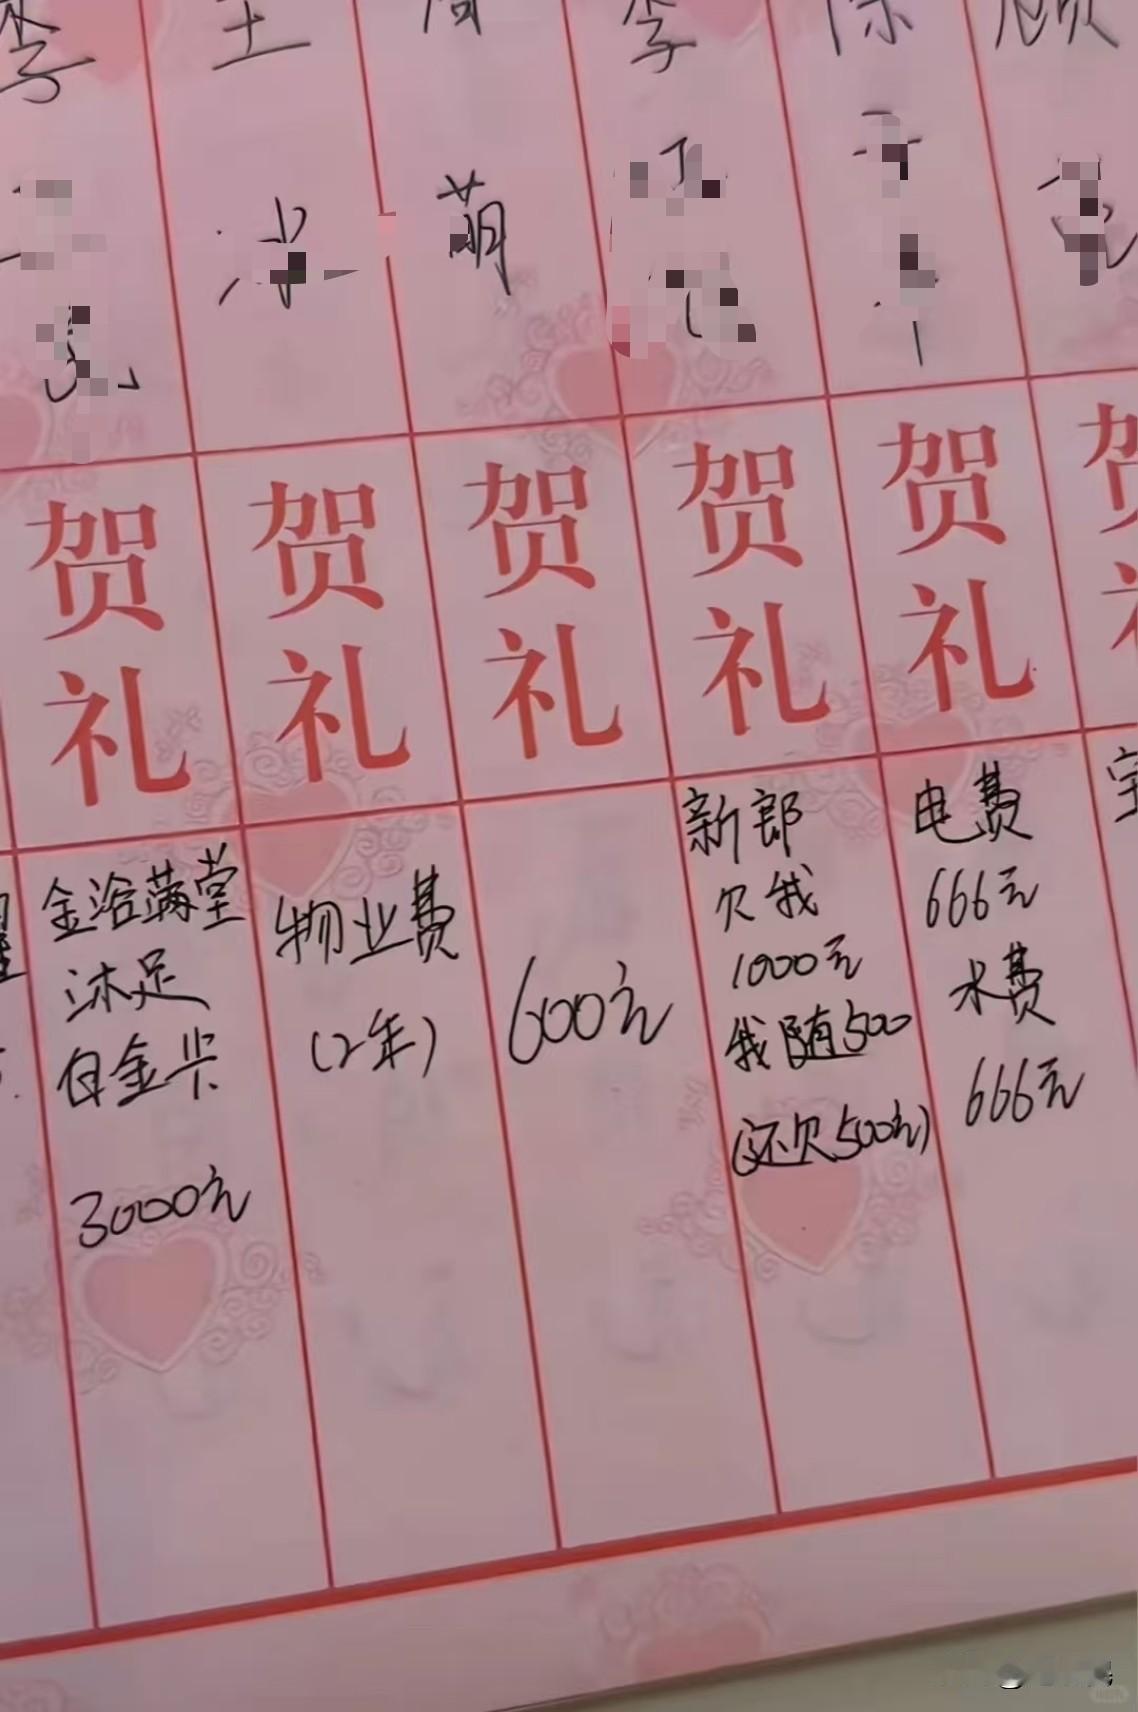 李
王
李
陈
顾
萌
贺
礼
贺
礼
贺
礼
贺
礼
贺
礼
金浴满堂
沐足
白金卡
3000元
物业费
(2年)
600元
新郎
欠我
1000元
我随500
(还欠500元)
电费
666元
水费
666元